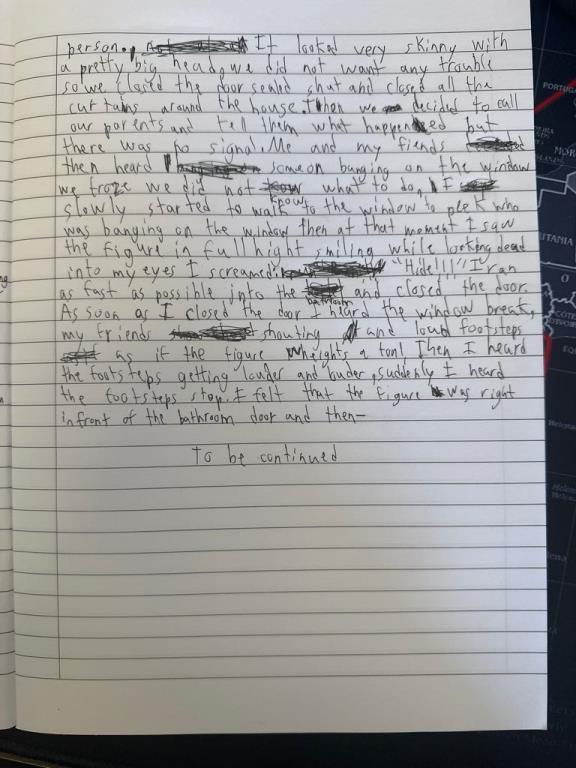 person. It looked very skinny with
a pretty big head, we did not want any trouble
so we closed the door send shut and closed all the
curtains around the house. Then we decided to call
our parents and tell them what happened but
there was no signal. Me and my fiends
then heard someon banging on the window
we froze we did not know what to do, I
slowly started to walk to the window to peek who
was banging on the window then at that moment I saw
the figure in full hight smiling while looking dead
into my eyes I screamed: "Hide!!!" I ran
as fast as possible into the bathroom and closed the door.
As soon as I closed the door I heard the window break,
my friends shouting and loud footsteps
as if the figure wheights a ton! Then I heard
the footsteps getting louder and louder, suddenly I heard
the footsteps stop. I felt that the figure was right
infront of the bathroom door and then—
To be continued
PORTUGA
MOR
ITANIA